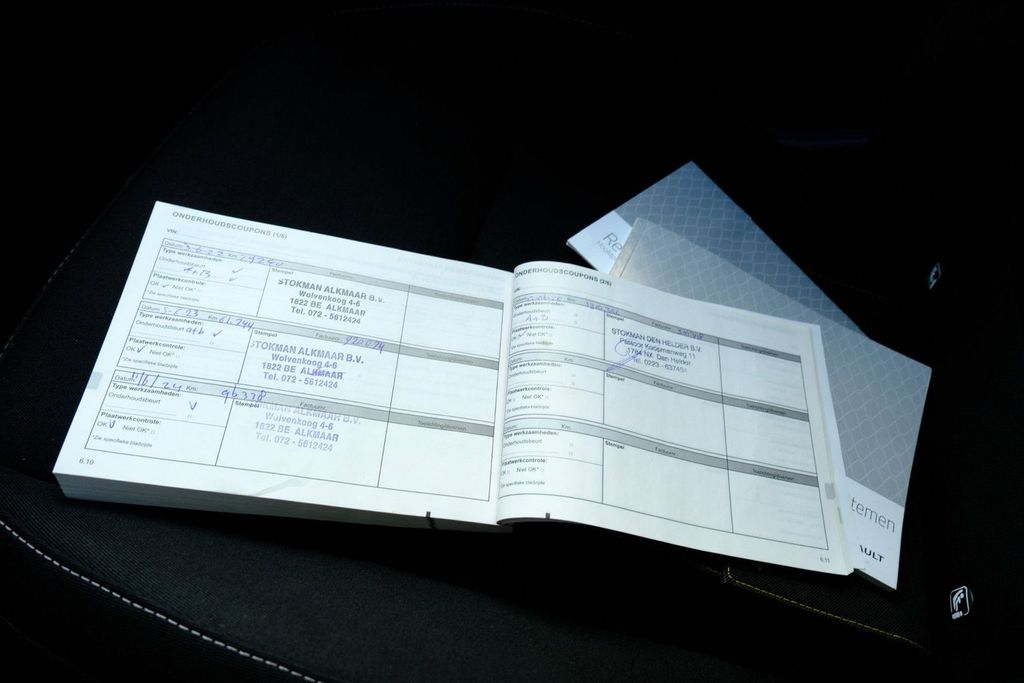 ONDERHOUDSCOUPONS (1/6)
VIN:
Datum: 3-6-22 Km:
Type werkzaamheden:
Onderhoudsbeurt
A+B
Plaatwerkcontrole:
OK ✓ Niet OK*
*Zie specifieke bladzijde
Stempel Factuurnr.
STOKMAN ALKMAAR B.V.
Wolvenkoog 4-6
1822 BE ALKMAAR
Tel. 072 - 5612424
Datum: 5-6-23 Km:
Type werkzaamheden:
Onderhoudsbeurt
Plaatwerkcontrole:
OK ✓ Niet OK*
*Zie specifieke bladzijde
Stempel Factuurnr.
STOKMAN ALKMAAR B.V.
Wolvenkoog 4-6
1822 BE ALKMAAR
Tel. 072 - 5612424
Datum: /6/24 Km: 96338
Type werkzaamheden:
Onderhoudsbeurt
Plaatwerkcontrole:
OK ✓ Niet OK*
*Zie specifieke bladzijde
Stempel Factuurnr. Toelichting/diversen
STOKMAN ALKMAAR B.V.
Wolvenkoog 4-6
1822 BE ALKMAAR
Tel. 072 - 5612424
6.10
ONDERHOUDSCOUPONS (2/6)
VIN:
Datum: Km:
Type werkzaamheden:
Onderhoudsbeurt
Plaatwerkcontrole:
OK Niet OK*
*Zie specifieke bladzijde
Stempel Factuurnr. Toelichting/diversen
STOKMAN DEN HELDER B.V.
Pastoor Koopmanweg 11
1784 NX Den Helder
Datum: Km:
Type werkzaamheden:
Onderhoudsbeurt
Plaatwerkcontrole:
OK Niet OK*
*Zie specifieke bladzijde
Stempel Factuurnr. Toelichting/diversen
Datum: Km:
Type werkzaamheden:
Onderhoudsbeurt
Plaatwerkcontrole:
OK Niet OK*
*Zie specifieke bladzijde
Stempel Factuurnr. Toelichting/diversen
6.11
Re
temen
AULT